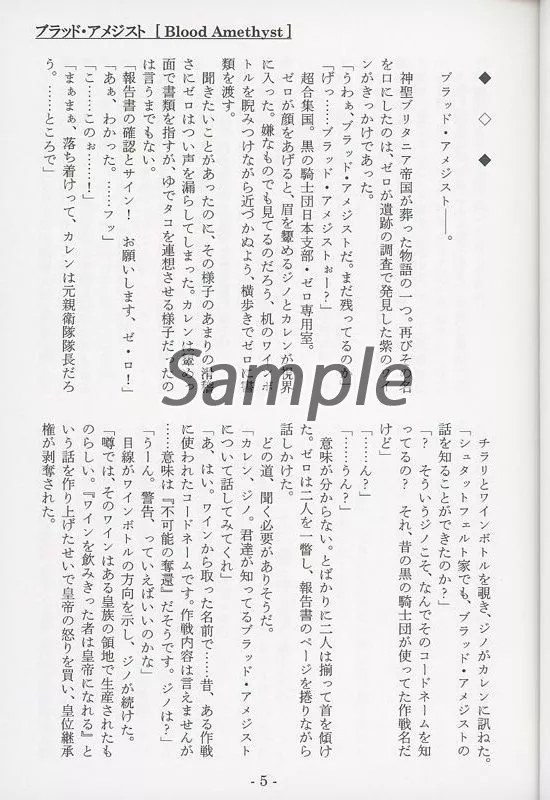 ブラッド・アメジスト [ Blood Amethyst ]
◆ ◇ ◆
ブラッド・アメジスト――。
神聖ブリタニア帝国が葬った物語の一つ。再びその名
を口にしたのは、ゼロが遺跡の調査で発見した紫のワイ
ンがきっかけであった。
「うわぁ、ブラッド・アメジストだ。まだ残ってるのか」
「げっ……ブラッド・アメジストぉー？」
超合集国。黒の騎士団日本支部・ゼロ専用室。
ゼロが顔をあげると、眉を顰めるジノとカレンが視界
に入った。嫌なものでも見てるのだろう、机のワインボ
トルを睨みつけながら近づかぬよう、横歩きでゼロに書
類を渡す。
聞きたいことがあったのに、その様子のあまりの滑稽
さにゼロはつい声を漏らしてしまった。カレンは顰めっ
面で書類を指すが、ゆでタコを連想させる様子だったの
は言うまでもない。
「報告書の確認とサイン！　お願いします、ゼ・ロ！」
「あぁ、わかった。……フッ」
「こ……このぉ……！」
「まぁまぁ、落ち着けって、カレンは元親衛隊隊長だろ
う。……ところで」
チラリとワインボトルを覗き、ジノがカレンに訊ねた。
「シュタットフェルト家でも、ブラッド・アメジストの
話を知ることができたのか？」
「？　そういうジノこそ、なんでそのコードネームを知
ってるの？　それ、昔の黒の騎士団が使ってた作戦名だ
けど」
「……ん？」
「……うん？」
意味が分からない。とばかりに二人は揃って首を傾け
た。ゼロは二人を一瞥し、報告書のページを捲りながら
話しかけた。
どの道、聞く必要がありそうだ。
「カレン、ジノ。君達が知ってるブラッド・アメジスト
について話してみてくれ」
「あ、はい。ワインから取った名前で……昔、ある作戦
に使われたコードネームです。作戦内容は言えませんが
……意味は『不可能の奪還』だそうです。ジノは？」
「うーん。警告、っていえばいいのかな」
目線がワインボトルの方向を示し、ジノが続けた。
「噂では、そのワインはある皇族の領地で生産されたも
のらしい。『ワインを飲みきった者は皇帝になれる』と
いう話を作り上げたせいで皇帝の怒りを買い、皇位継承
権が剥奪された。
Sample
- 5 -